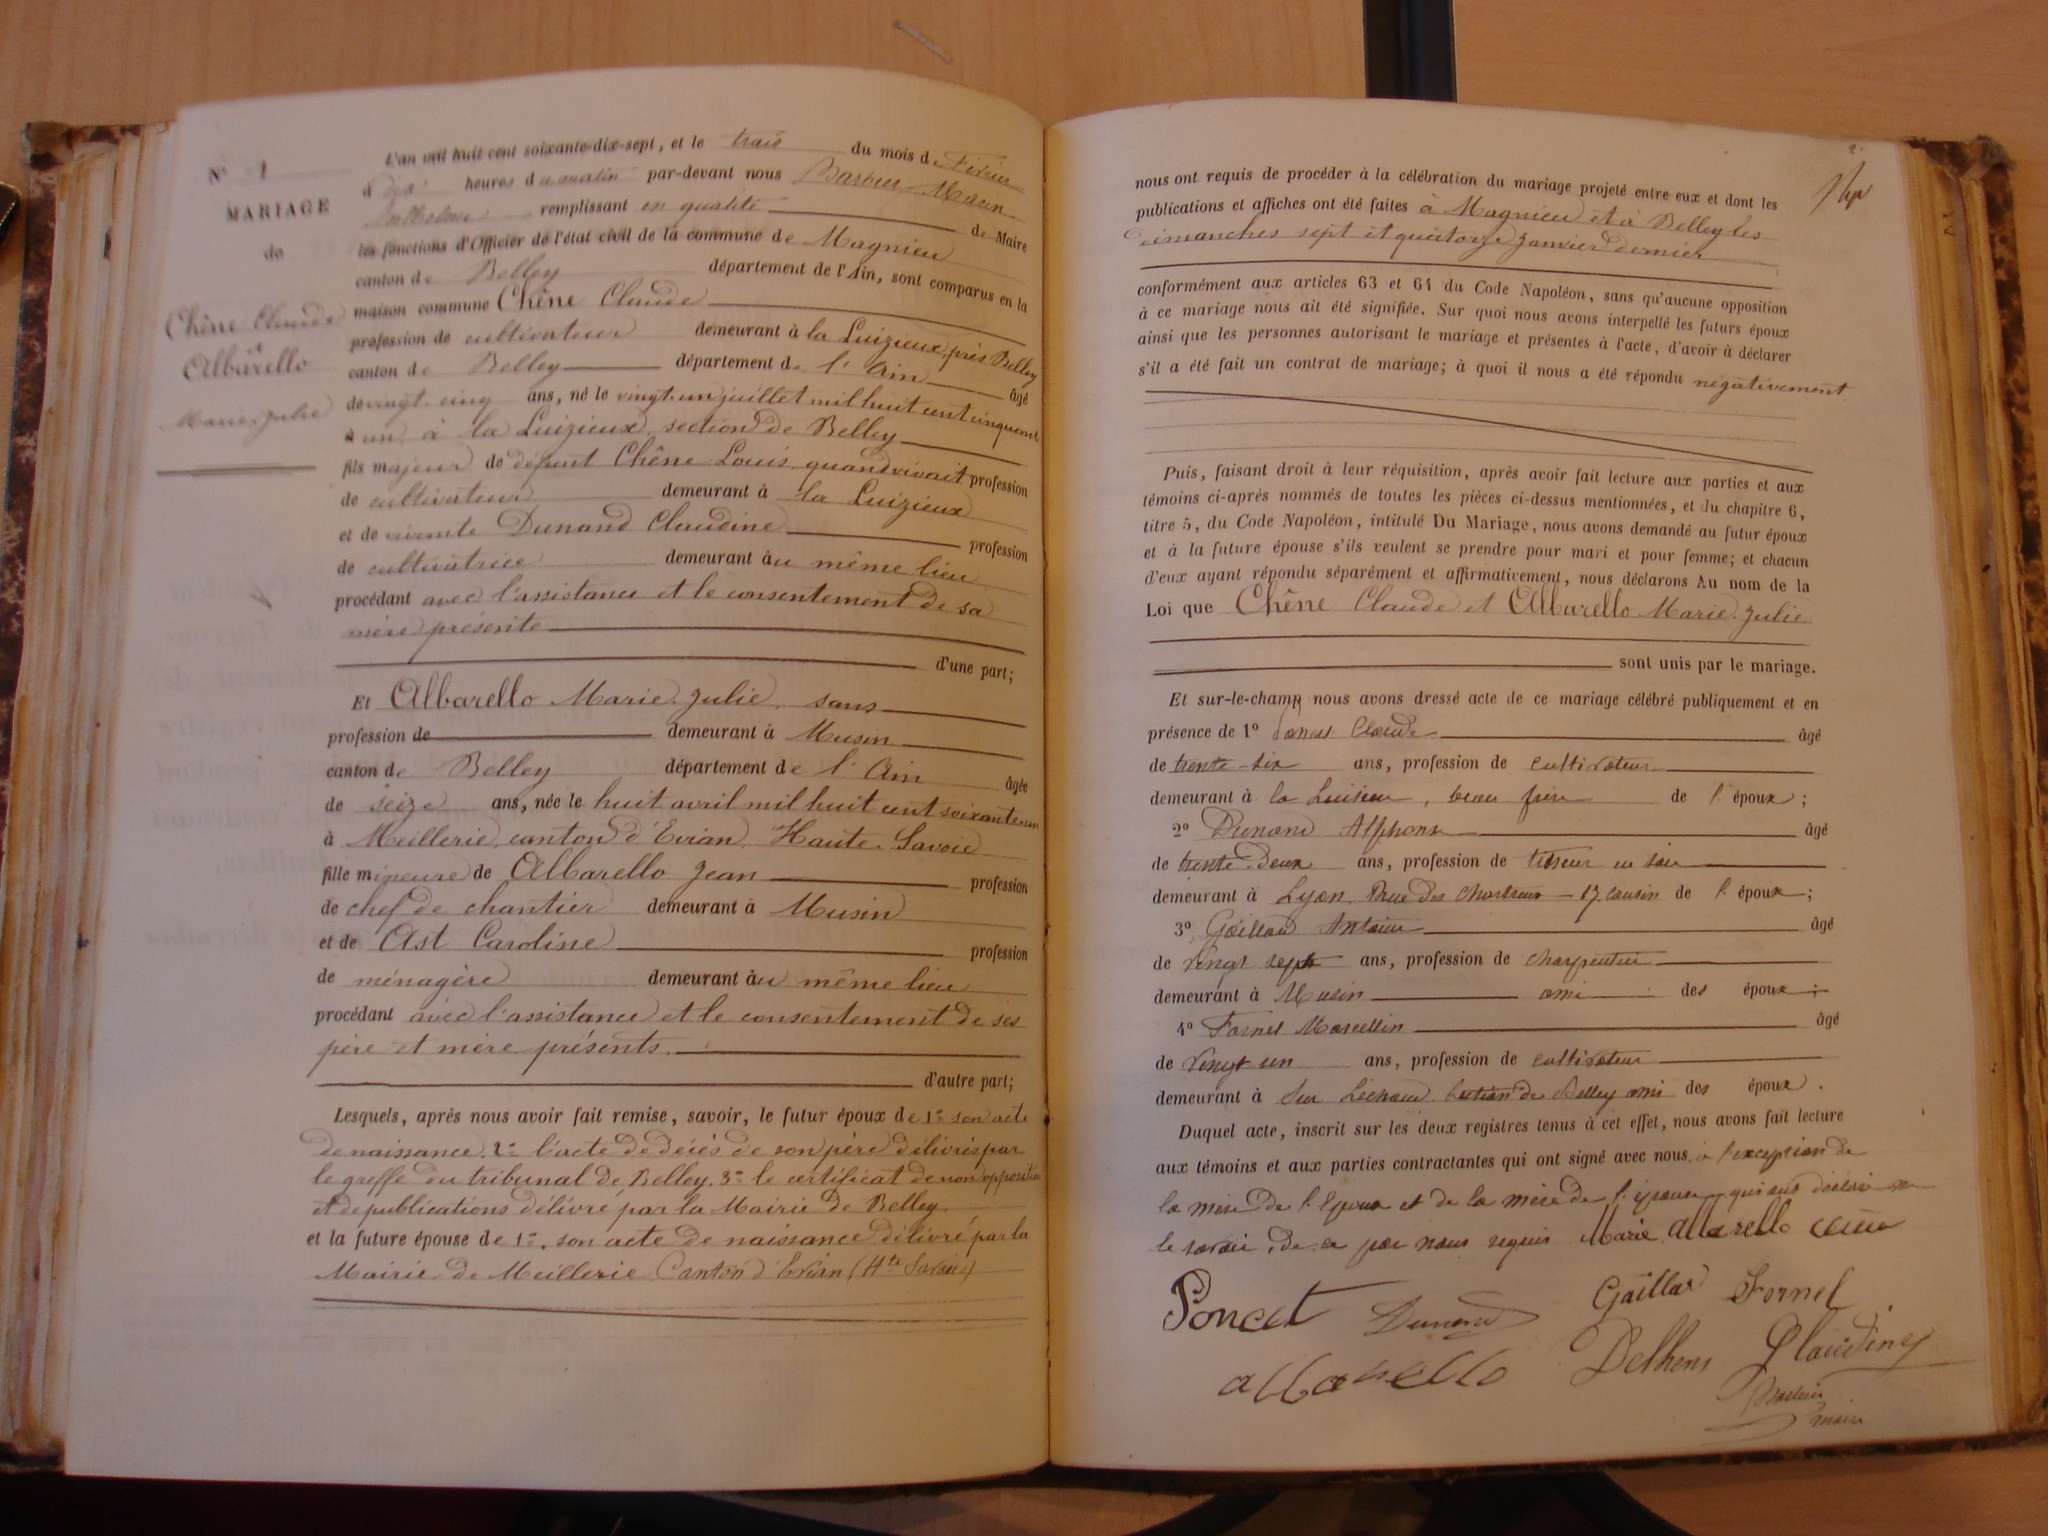 N° 1
MARIAGE
de
Chêne Claude
et
Albarello
Marie Julie
L'an mil huit cent soixante-dix-sept, et le trois du mois de Février
à dix heures du matin par-devant nous Barbier Marin
Anthelme remplissant en qualité de Maire
les fonctions d'Officier de l'état civil de la commune de Magnieu
canton de Belley département de l'Ain, sont comparus en la
maison commune Chêne Claude
profession de cultivateur demeurant à la Luizieux, près Belley
canton de Belley département de l'Ain âgé
de vingt-cinq ans, né le vingt-un juillet mil huit cent cinquante
un à la Luizieux, section de Belley
fils majeur de défunt Chêne Louis, quand vivait profession
de cultivateur demeurant à la Luizieux
et de vivante Dunand Claudine profession
de cultivatrice demeurant au même lieu
procédant avec l'assistance et le consentement de sa
mère présente
d'une part;
Et Albarello Marie Julie, sans
profession de demeurant à Musin
canton de Belley département de l'Ain âgée
de seize ans, née le huit avril mil huit cent soixante un
à Meillerie, canton d'Evian, Haute-Savoie
fille mineure de Albarello Jean profession
de chef de chantier demeurant à Musin
et de Ast Caroline profession
de ménagère demeurant au même lieu
procédant avec l'assistance et le consentement de ses
père et mère présents.
d'autre part;
Lesquels, après nous avoir fait remise, savoir, le futur époux de 1° son acte
de naissance. 2° l'acte de décès de son père délivrés par
le greffe du tribunal de Belley. 3° le certificat de non opposition
et de publications délivré par la Mairie de Belley.
et la future épouse de 1°, son acte de naissance délivré par la
Mairie de Meillerie Canton d'Evian (Hte Savoie)
2.
nous ont requis de procéder à la célébration du mariage projeté entre eux et dont les
publications et affiches ont été faites à Magnieu et à Belley les
dimanches sept et quatorze janvier dernier
conformément aux articles 63 et 64 du Code Napoléon, sans qu'aucune opposition
à ce mariage nous ait été signifiée. Sur quoi nous avons interpellé les futurs époux
ainsi que les personnes autorisant le mariage et présentes à l'acte, d'avoir à déclarer
s'il a été fait un contrat de mariage; à quoi il nous a été répondu négativement
Puis, faisant droit à leur réquisition, après avoir fait lecture aux parties et aux
témoins ci-après nommés de toutes les pièces ci-dessus mentionnées, et du chapitre 6,
titre 5, du Code Napoléon, intitulé Du Mariage, nous avons demandé au futur époux
et à la future épouse s'ils veulent se prendre pour mari et pour femme; et chacun
d'eux ayant répondu séparément et affirmativement, nous déclarons Au nom de la
Loi que Chêne Claude et Albarello Marie Julie
sont unis par le mariage.
Et sur-le-champ nous avons dressé acte de ce mariage célébré publiquement et en
présence de 1° Poncet Claude âgé
de trente-six ans, profession de cultivateur
demeurant à la Luisieu, beau frère de l'époux;
2° Dunand Alphonse âgé
de trente-deux ans, profession de tisseur en soie
demeurant à Lyon, Rue des Chartreux 17 cousin de l'époux;
3° Gaillard Antoine âgé
de vingt sept ans, profession de charpentier
demeurant à Musin ami des époux;
4° Fornel Marcellin âgé
de vingt un ans, profession de cultivateur
demeurant à Sur Léchaud section de Belley ami des époux.
Duquel acte, inscrit sur les deux registres tenus à cet effet, nous avons fait lecture
aux témoins et aux parties contractantes qui ont signé avec nous à l'exception de
la mère de l'époux et de la mère de l'épouse qui ont déclaré ne
le savoir, de ce par nous requis Marie Albarello
Poncet Dunand Gaillard Fornel
albarello Delhens Claudiney
Barbier
maire